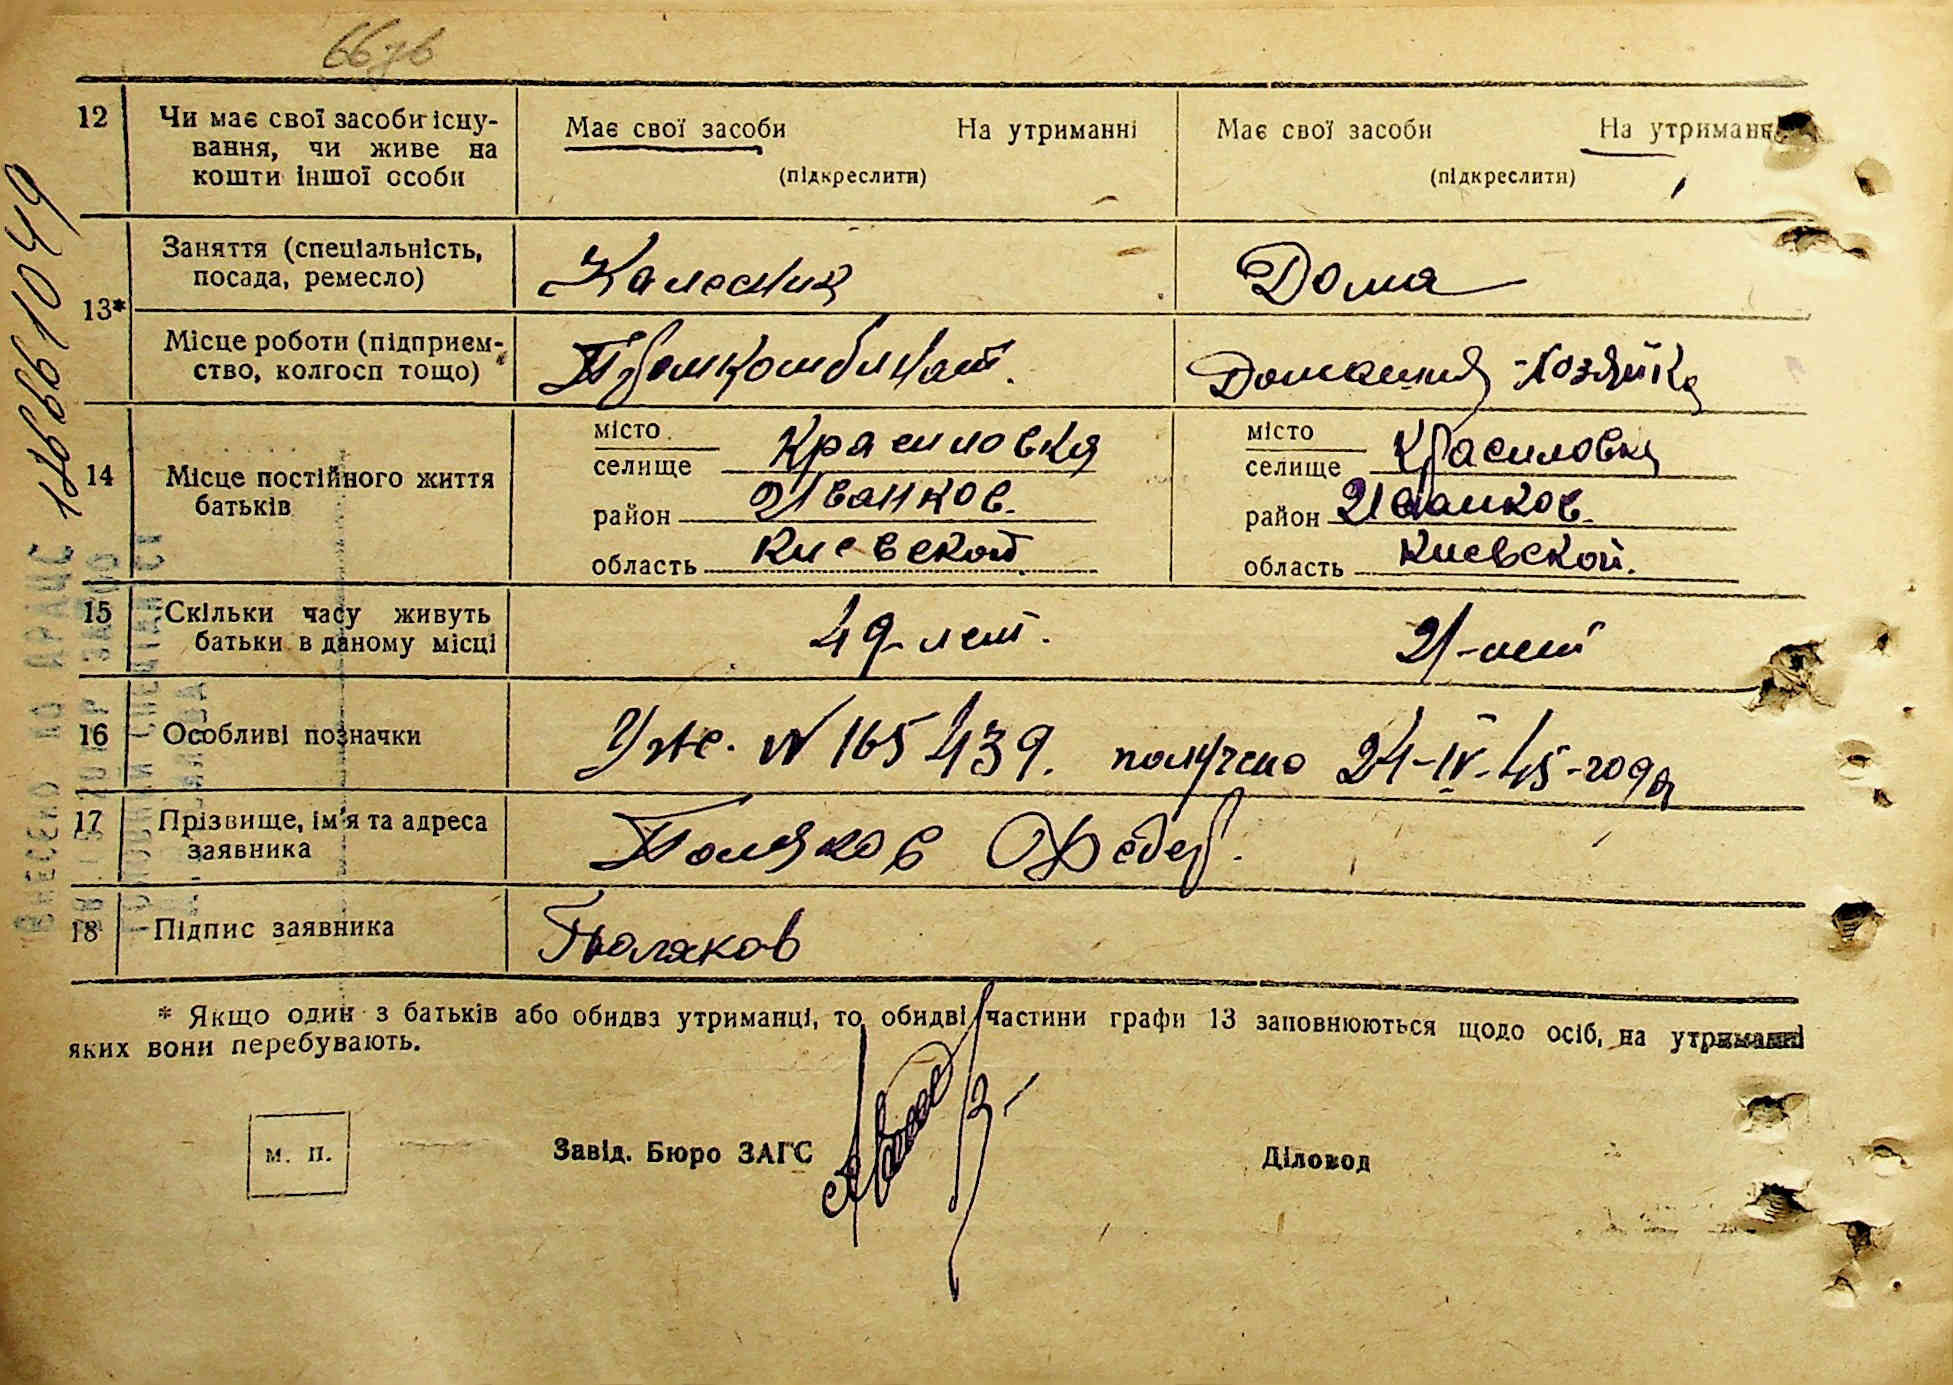 12 Чи має свої засоби існу-
вання, чи живе на
кошти іншої особи
Має свої засоби На утриманні
(підкреслити)
Має свої засоби На утриманні
(підкреслити)
13*
Заняття (спеціальність,
посада, ремесло)
Калесник
Дома
Місце роботи (підприєм-
ство, колгосп тощо)
Промкомбинат.
Домашния Хозяйка
14 Місце постійного життя
батьків
місто
селище Красиловка
район Иванков.
область Киевской
місто
селище Красиловка
район Иванков.
область Киевской.
15 Скільки часу живуть
батьки в даному місці
49 лет.
21-лет
16 Особливі позначки
N 165439. получено 24-IV-45-года
17 Прізвище, ім'я та адреса
заявника
Поляков Федор.
18 Підпис заявника
Поляков
* Якщо один з батьків або обидва утриманці, то обидві частини графи 13 заповнюються щодо осіб, на утриманні
яких вони перебувають.
м. п.
Завід. Бюро ЗАГС
Діловод